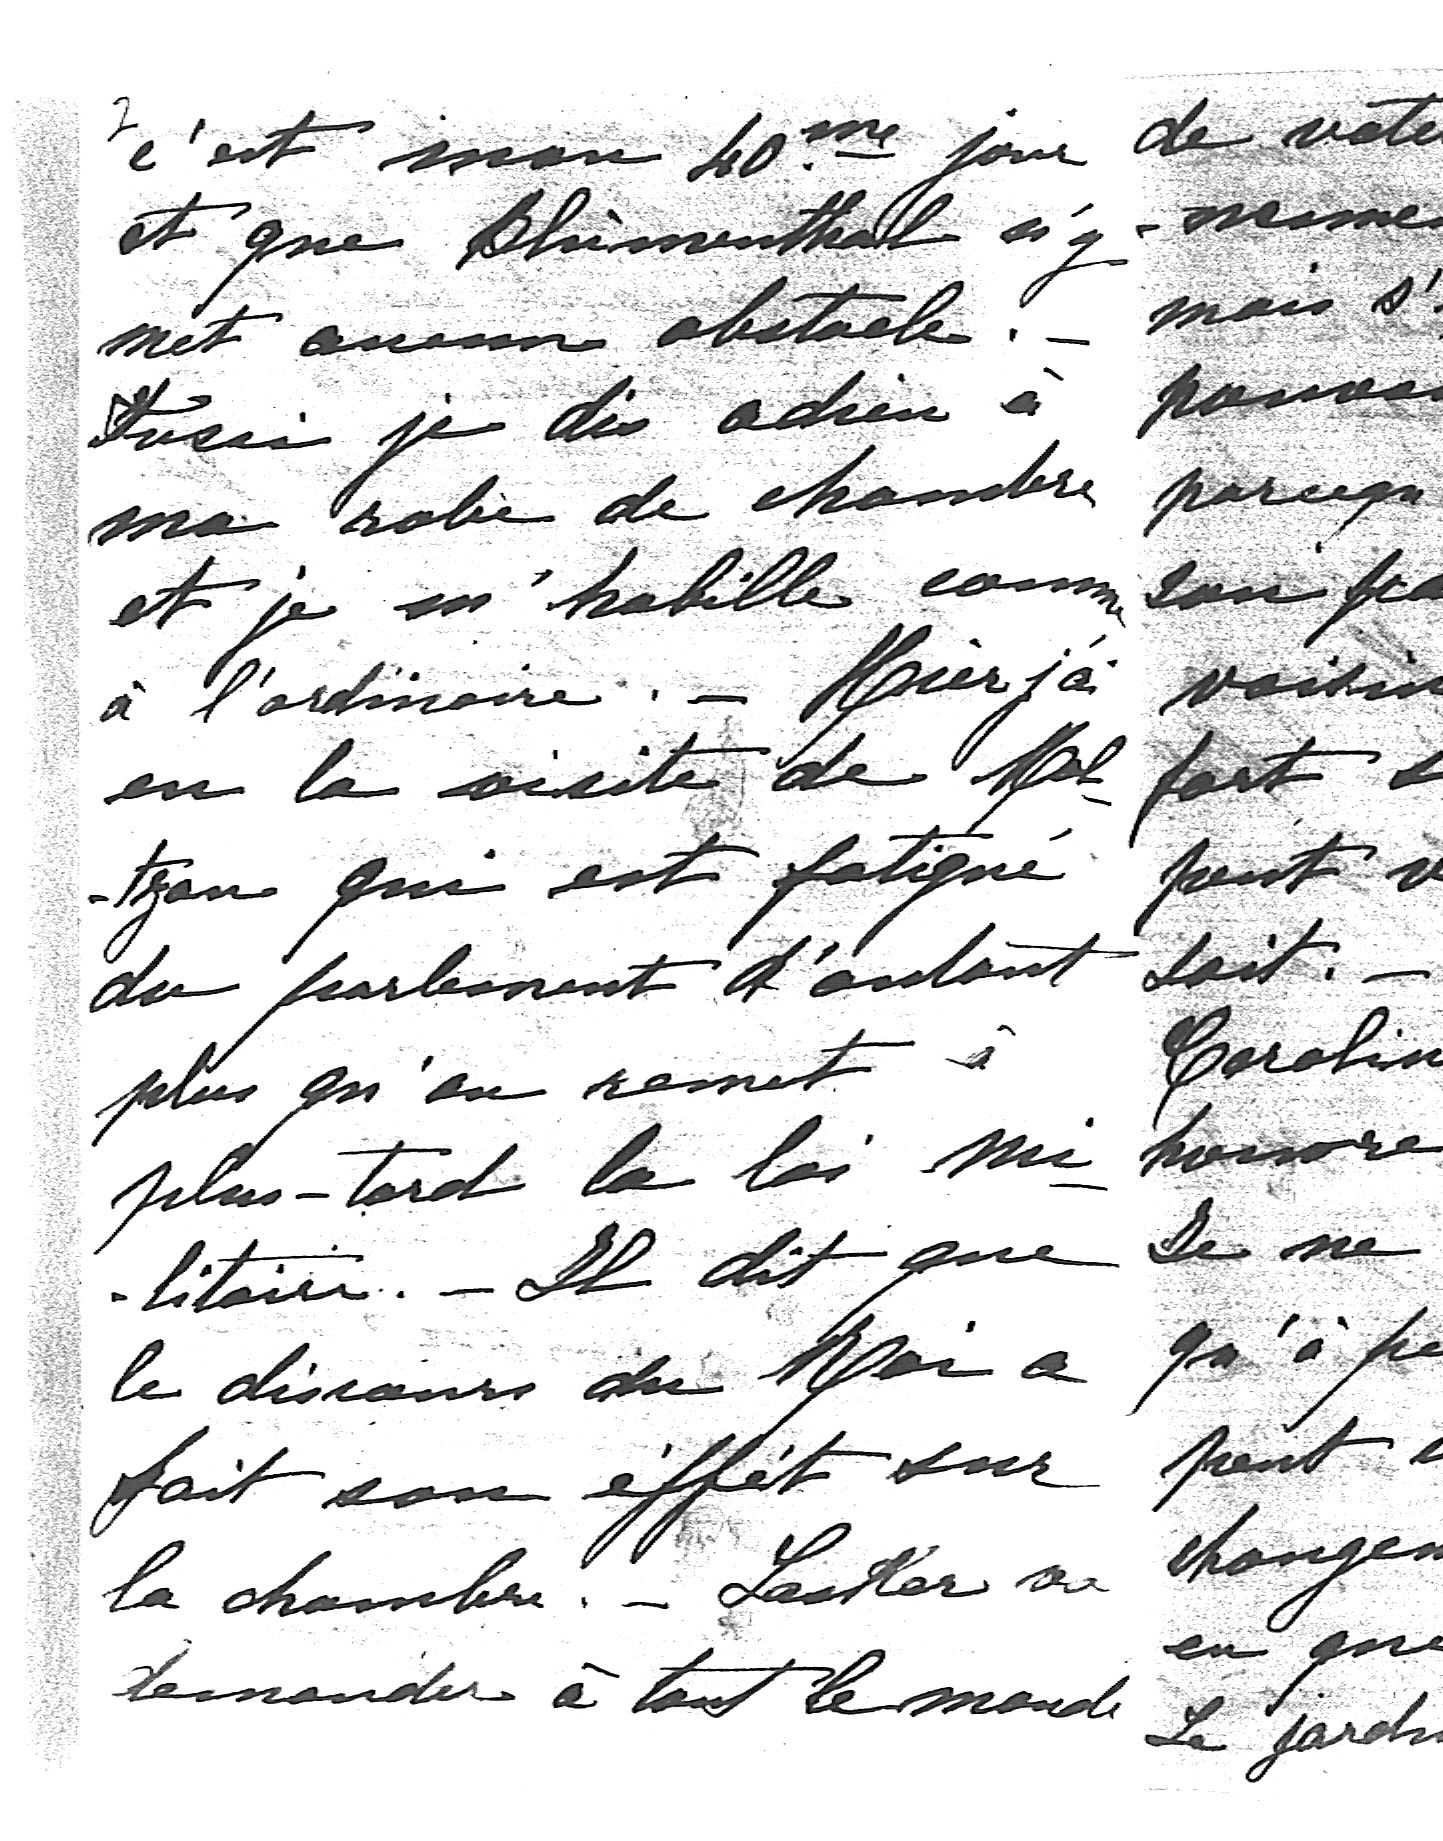 2
c'est mon 40.me jour
et que Blümenthal n'y
met aucun obstacle. –
Aussi je dis adieu à
ma robe de chambre
et je m'habille comme
à l'ordinaire. – Hier j'ai
eu la visite de Mal-
-tzan qui est fatigué
du parlement d'autant
plus qu'on remet à
plus-tard la loi mi-
-litaire. – Il dit que
le discours du Roi a
fait son éffét sur
la chambre. – Lasker va
demander à tout le monde
de vote
-mimen
mais s'
pouvoi
parcequ
son fra
voisin
fort s
peut v
soit. –
Carolin
honore
Je ne
qu'à pe
peut
changem
en que
Le jardin